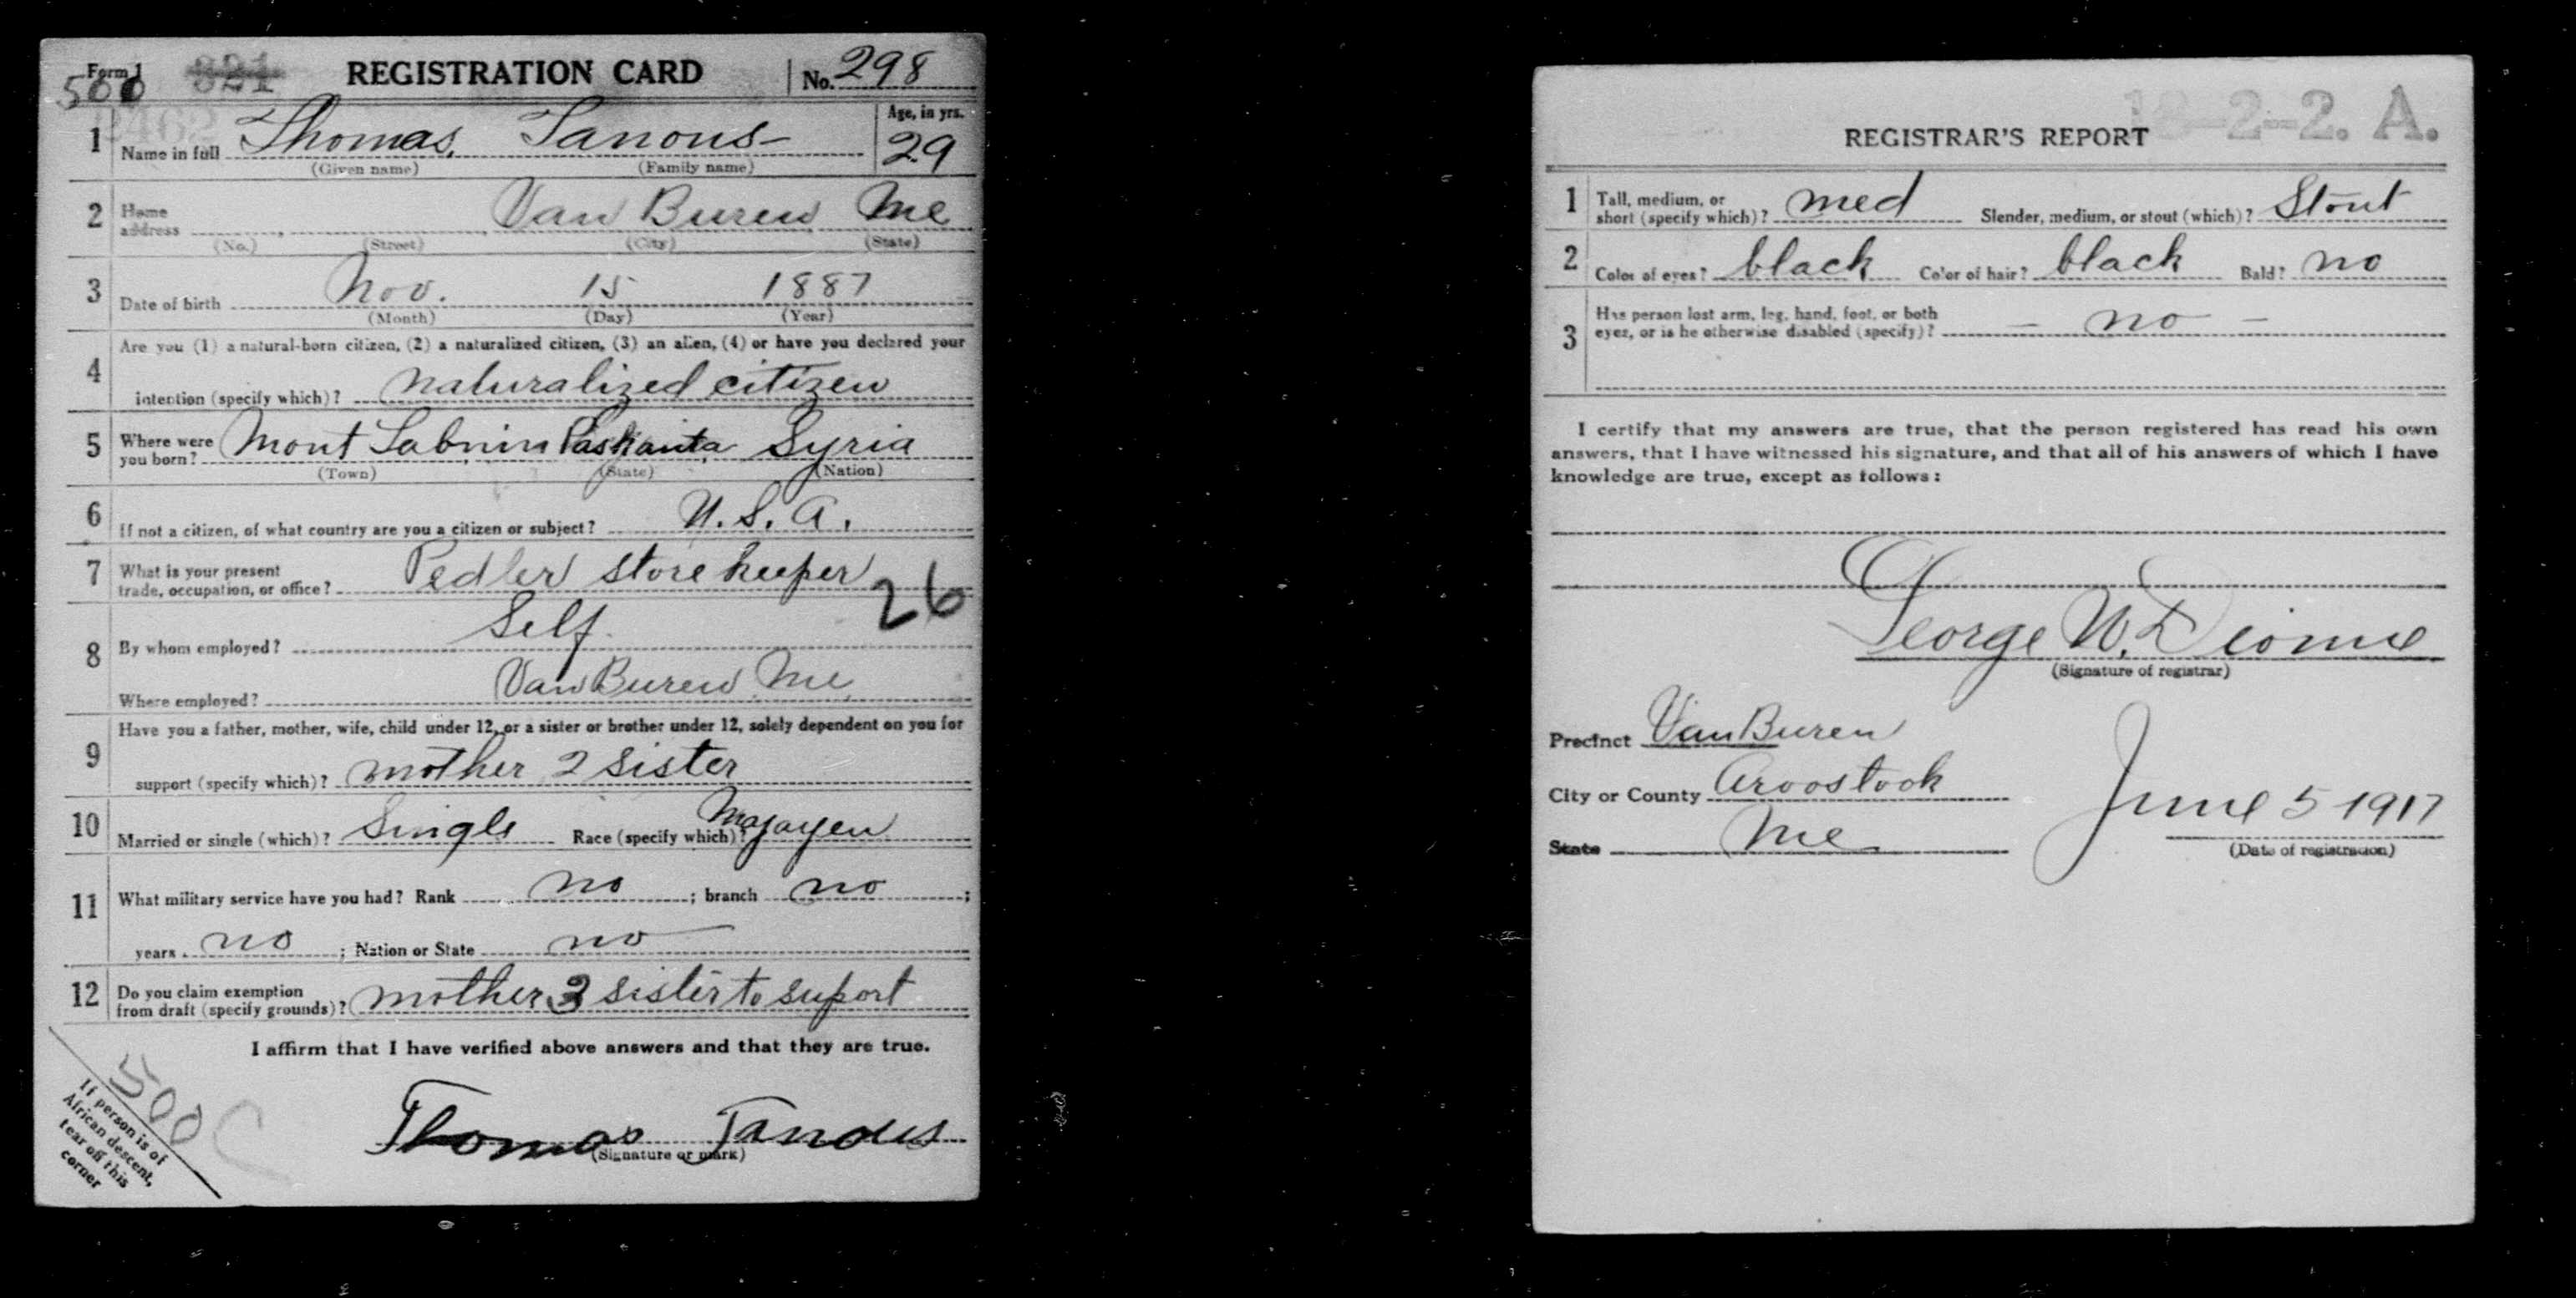 Form 1
500
321
REGISTRATION CARD
No. 298
1 Name in full Thomas, Tanous
(Given name) (Family name)
Age, in yrs.
29
2 Home address Van Buren Me
(No.) (Street) (City) (State)
3 Date of birth Nov. 15 1887
(Month) (Day) (Year)
4 Are you (1) a natural-born citizen, (2) a naturalized citizen, (3) an alien, (4) or have you declared your
intention (specify which)? naturalized citizen
5 Where were you born? Mont Labnin Syria
(Town) (State) (Nation)
6 If not a citizen, of what country are you a citizen or subject? U.S.A.
7 What is your present
trade, occupation, or office? Pedler store keeper
26
8 By whom employed? Self.
Where employed? Van Buren Me
9 Have you a father, mother, wife, child under 12, or a sister or brother under 12, solely dependent on you for
support (specify which)? mother 2 sister
10 Married or single (which)? Single Race (specify which)?
11 What military service have you had? Rank no ; branch no ;
years no ; Nation or State no
12 Do you claim exemption
from draft (specify grounds)? mother 2 sister to suport
I affirm that I have verified above answers and that they are true.
Thomas Tanous
(Signature or mark)
If person is of
African descent,
tear off this
corner
500
C
18-2-2. A.
REGISTRAR'S REPORT
1 Tall, medium, or
short (specify which)? med Slender, medium, or stout (which)? Stout
2 Color of eyes? black Color of hair? black Bald? no
3 Has person lost arm, leg, hand, foot, or both
eyes, or is he otherwise disabled (specify)? - no -
I certify that my answers are true, that the person registered has read his own
answers, that I have witnessed his signature, and that all of his answers of which I have
knowledge are true, except as follows:
George W. Dionne
(Signature of registrar)
Precinct Van Buren
City or County Aroostook
State Me
June 5 1917
(Date of registration)